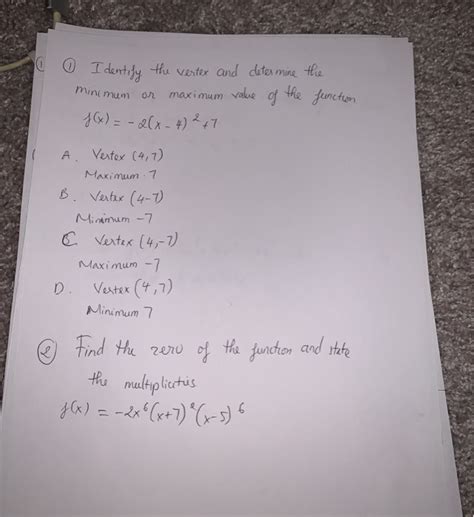 ① Identify the vertex and determine the
minimum or maximum value of the function
f(x) = -2(x-4)²+7
A. Vertex (4,7)
Maximum 7
B. Vertex (4-7)
Minimum -7
C. Vertex (4,-7)
Maximum -7
D. Vertex (4,7)
Minimum 7
② Find the zero of the function and state
the multiplicities
f(x) = -2x⁶(x+7)²(x-5)⁶